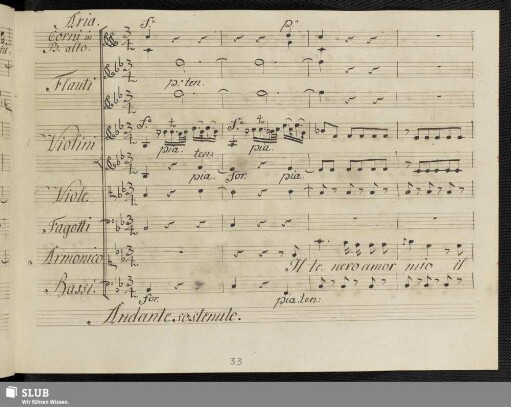 Aria.
Corni in
B. alto.
Flauti
p: ten.
Violini
pia. ten. pia.
pia. for. pia.
Viole.
Fagotti
Armonico
Il te nero amor mio il
Bassi.
for. pia. ten.
Andante sostenuto.
33
SLUB
Wir führen Wissen.